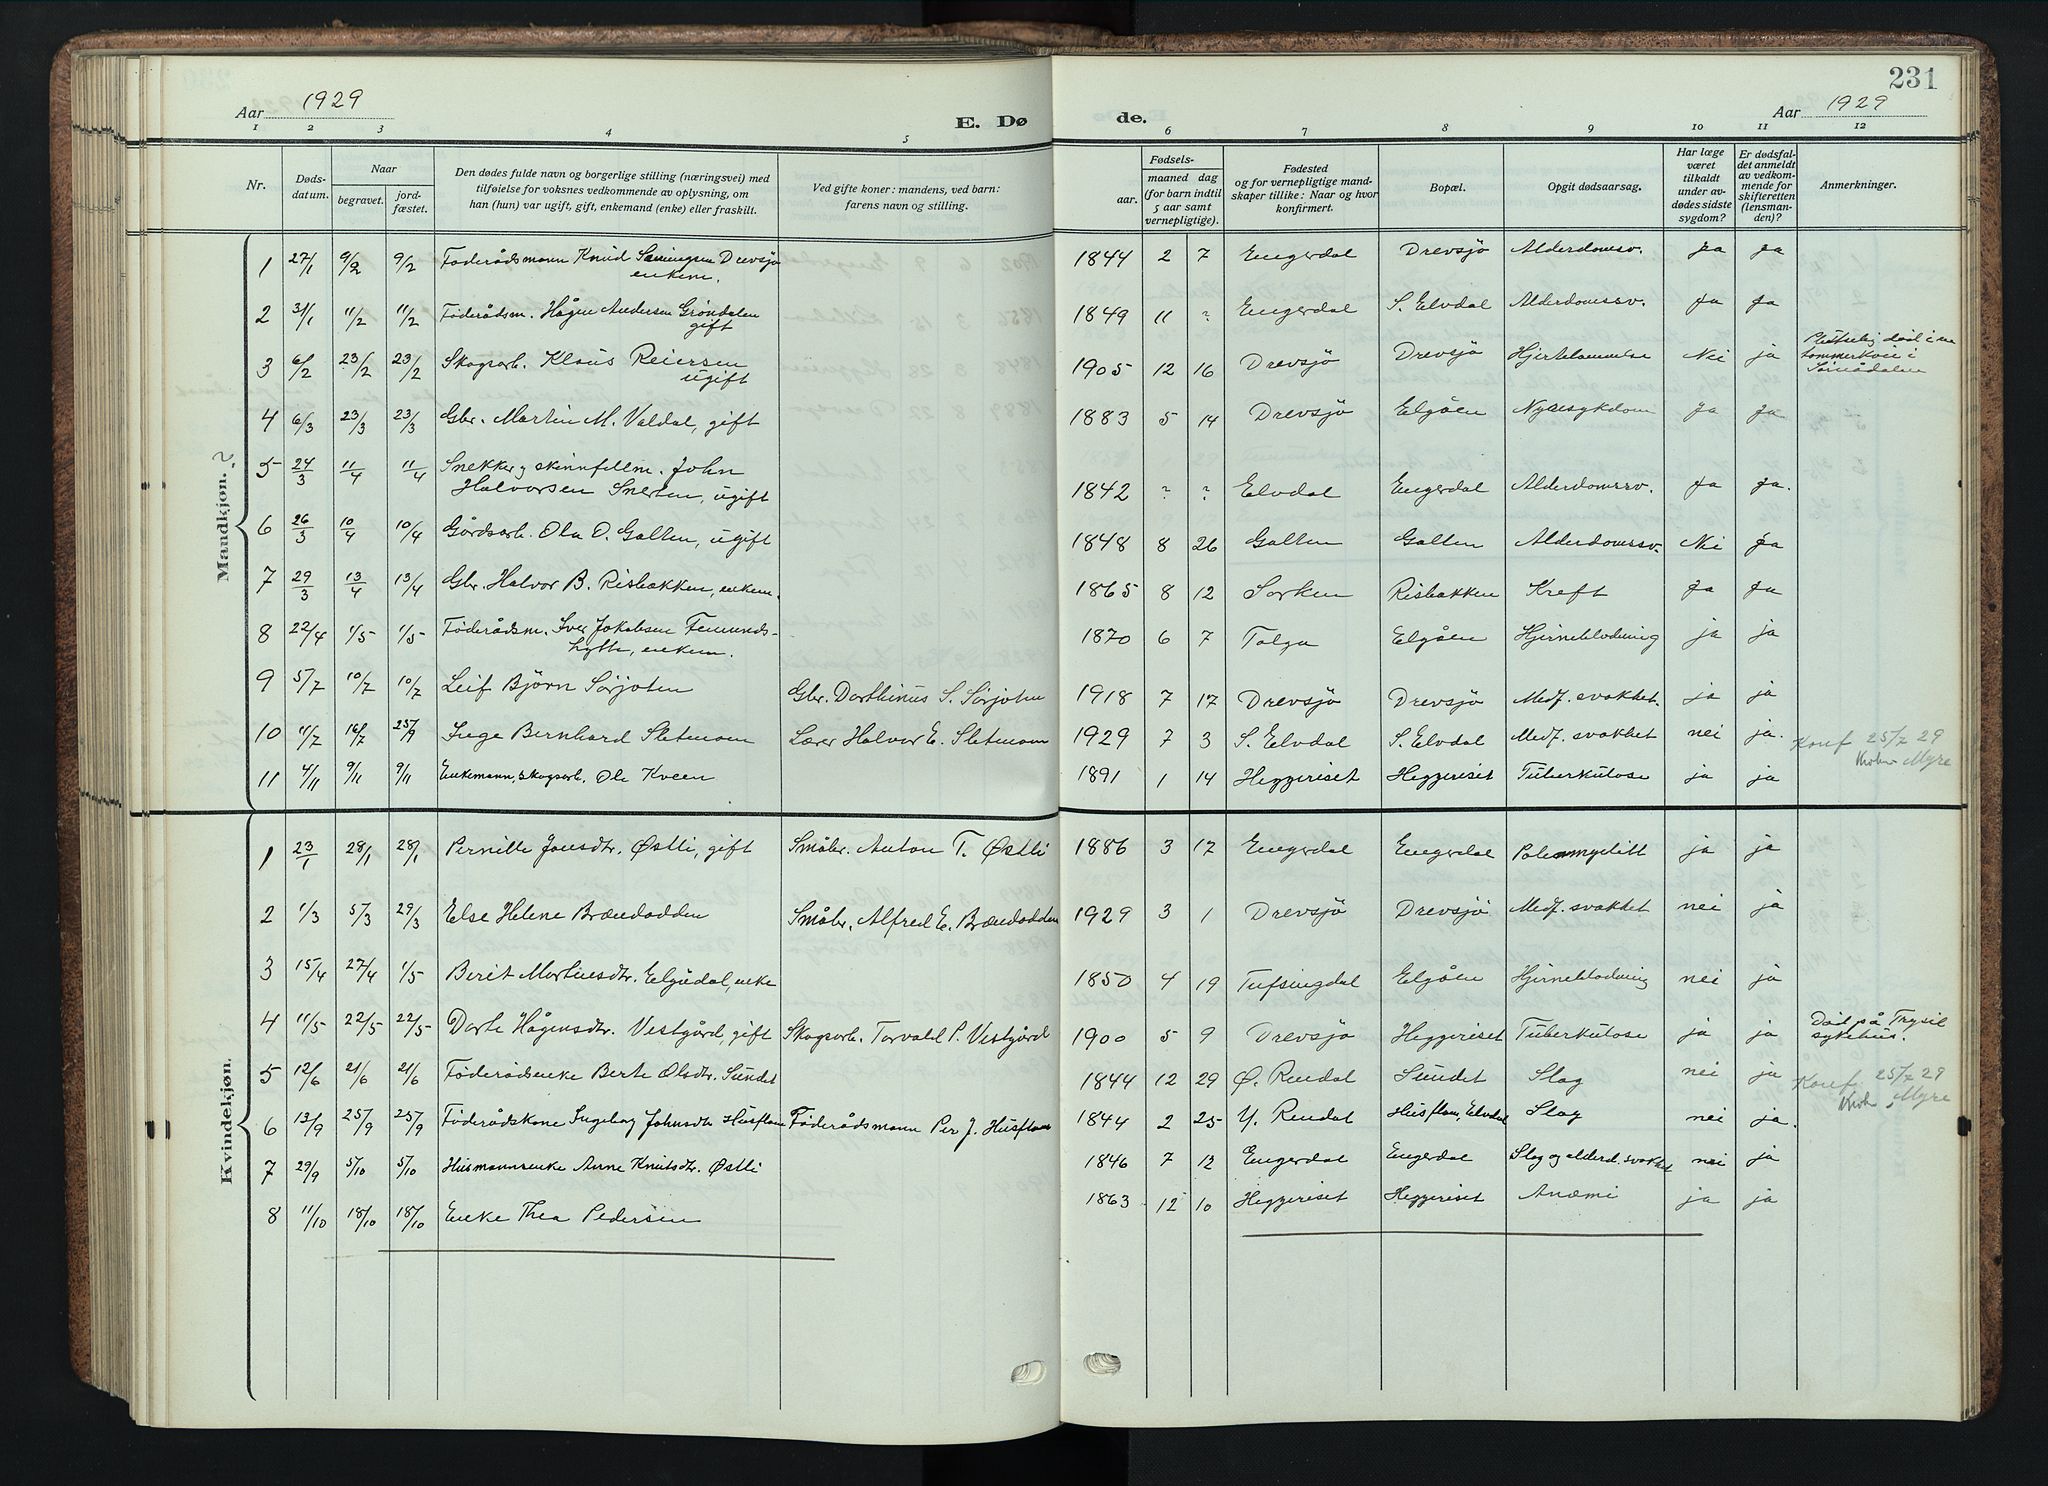 231
Aar 1929
E. Dø
de.
Aar 1929
1 2 3 4 5
6 7 8 9 10 11 12
Nr.
Døds-
datum.
Naar
begravet.
jord-
fæstet.
Den dødes fulde navn og borgerlige stilling (næringsvei) med
tilføielse for voksnes vedkommende av oplysning, om
han (hun) var ugift, gift, enkemand (enke) eller fraskilt.
Ved gifte koner: mandens, ved barn:
farens navn og stilling.
Fødsels-
aar.
maaned dag
(for barn indtil
5 aar samt
vernepligtige).
Fødested
og for vernepligtige mand-
skaper tillike: Naar og hvor
konfirmert.
Bopæl.
Opgit dødsaarsag.
Har læge
været
tilkaldt
under av-
dødes sidste
sygdom?
Er dødsfal-
det anmeldt
av vedkom-
mende for
skifteretten
(lensman-
den)?
Anmerkninger.
Mandkjøn.
1 27/1 9/2 9/2 Føderådsmann Knud Drevsjø 1844 2 7 Engerdal Drevsjö Alderdomsv. Ja Ja
enkem.
2 31/1 11/2 11/2 Föderådsm. Hågen Andersen Gröndalen 1849 11 ? Engerdal S. Elvdal Alderdomssv. Ja Ja
gift
3 6/2 23/2 23/2 Skogsarb. Klaus Reiersen 1905 12 16 Drevsjö Drevsjö Hjertelammelse Nei ja Pludselig död i en
ugift tömmerkoie i
Sömådalen
4 6/3 23/3 23/3 Gbr. Martin M. Valdal, gift 1883 5 14 Drevsjö Elgåen Nyresykdom Ja Ja
5 24/3 11/4 11/4 Snekker og skinnfellm. John
Halvorsen Snerten, ugift 1842 ? ? Elvdal Engerdal Alderdomssv. Ja Ja.
6 26/3 10/4 10/4 Gårdsarb. Ola O. Galten, ugift 1848 8 26 Galten Galten Alderdomssv. Nei Ja
7 29/3 13/4 13/4 Gbr. Halvor B. Risbakken, enkem. 1865 8 12 Sorken Risbakken Kreft Ja Ja
8 22/4 1/5 1/5 Föderådsm. Iver Jakobsen Femunds- 1870 6 7 Tolga Elgåen Hjerneblödning ja ja
hytte, enkem.
9 5/7 10/7 10/7 Leif Björn Sörjoten Gbr. Dorthinus S. Sörjoten 1918 7 17 Drevsjö Drevsjö Medf. svakhet. ja ja
10 11/7 16/7 25/7 Inge Bernhard Sletmoen Lærer Halvor E. Sletmoen 1929 7 3 S. Elvdal S. Elvdal Medf. svakhet nei ja. Konf 25/7 29
Myre
11 4/11 9/11 9/11 Enkemann, skogsarb. Ole Kveen 1891 1 14 Heggeriset Heggeriset Tuberkulose ja ja
Kvindekjøn.
1 23/1 28/1 28/1 Pernille Jonsdtr. Østli, gift Småbr. Anton T. Østli 1886 3 17 Engerdal Engerdal ja ja
2 1/3 5/3 29/3 Else Helene Brændodden Småbr. Alfred E. Brændodden 1929 3 1 Drevsjö Drevsjö Medf. svakhet nei ja
3 15/4 27/4 1/5 Berit Mortensdtr. Elgådal, enke 1850 4 19 Tufsingdal Elgåen Hjerneblödning nei ja
4 11/5 22/5 22/5 Dorte Hågensdtr. Vestgård, gift Skogsarb. Torvald P. Vestgård 1900 5 9 Drevsjö Heggeriset Tuberkulose ja ja Död på Trysil
sykehus.
5 12/6 21/6 21/6 Föderådsenke Berte Olsdtr. Sundet 1844 12 29 Ø. Rendal Sundet Slag nei ja Konf. 25/7 29
Myre
6 13/9 25/9 25/9 Föderådskone Ingeborg Johnsdtr Husfloen Föderådsmann Per J. Husfloen 1844 2 25 Y. Rendal Husfloen, Elvdal Slag nei ja.
7 29/9 5/10 5/10 Husmannsenke Anne Knutsdtr. Østli 1846 7 12 Engerdal Engerdal Slag og alderd. svakhet nei ja
8 11/10 18/10 18/10 Enke Thea Pedersen 1863 12 10 Heggeriset Heggeriset Anæmi ja ja